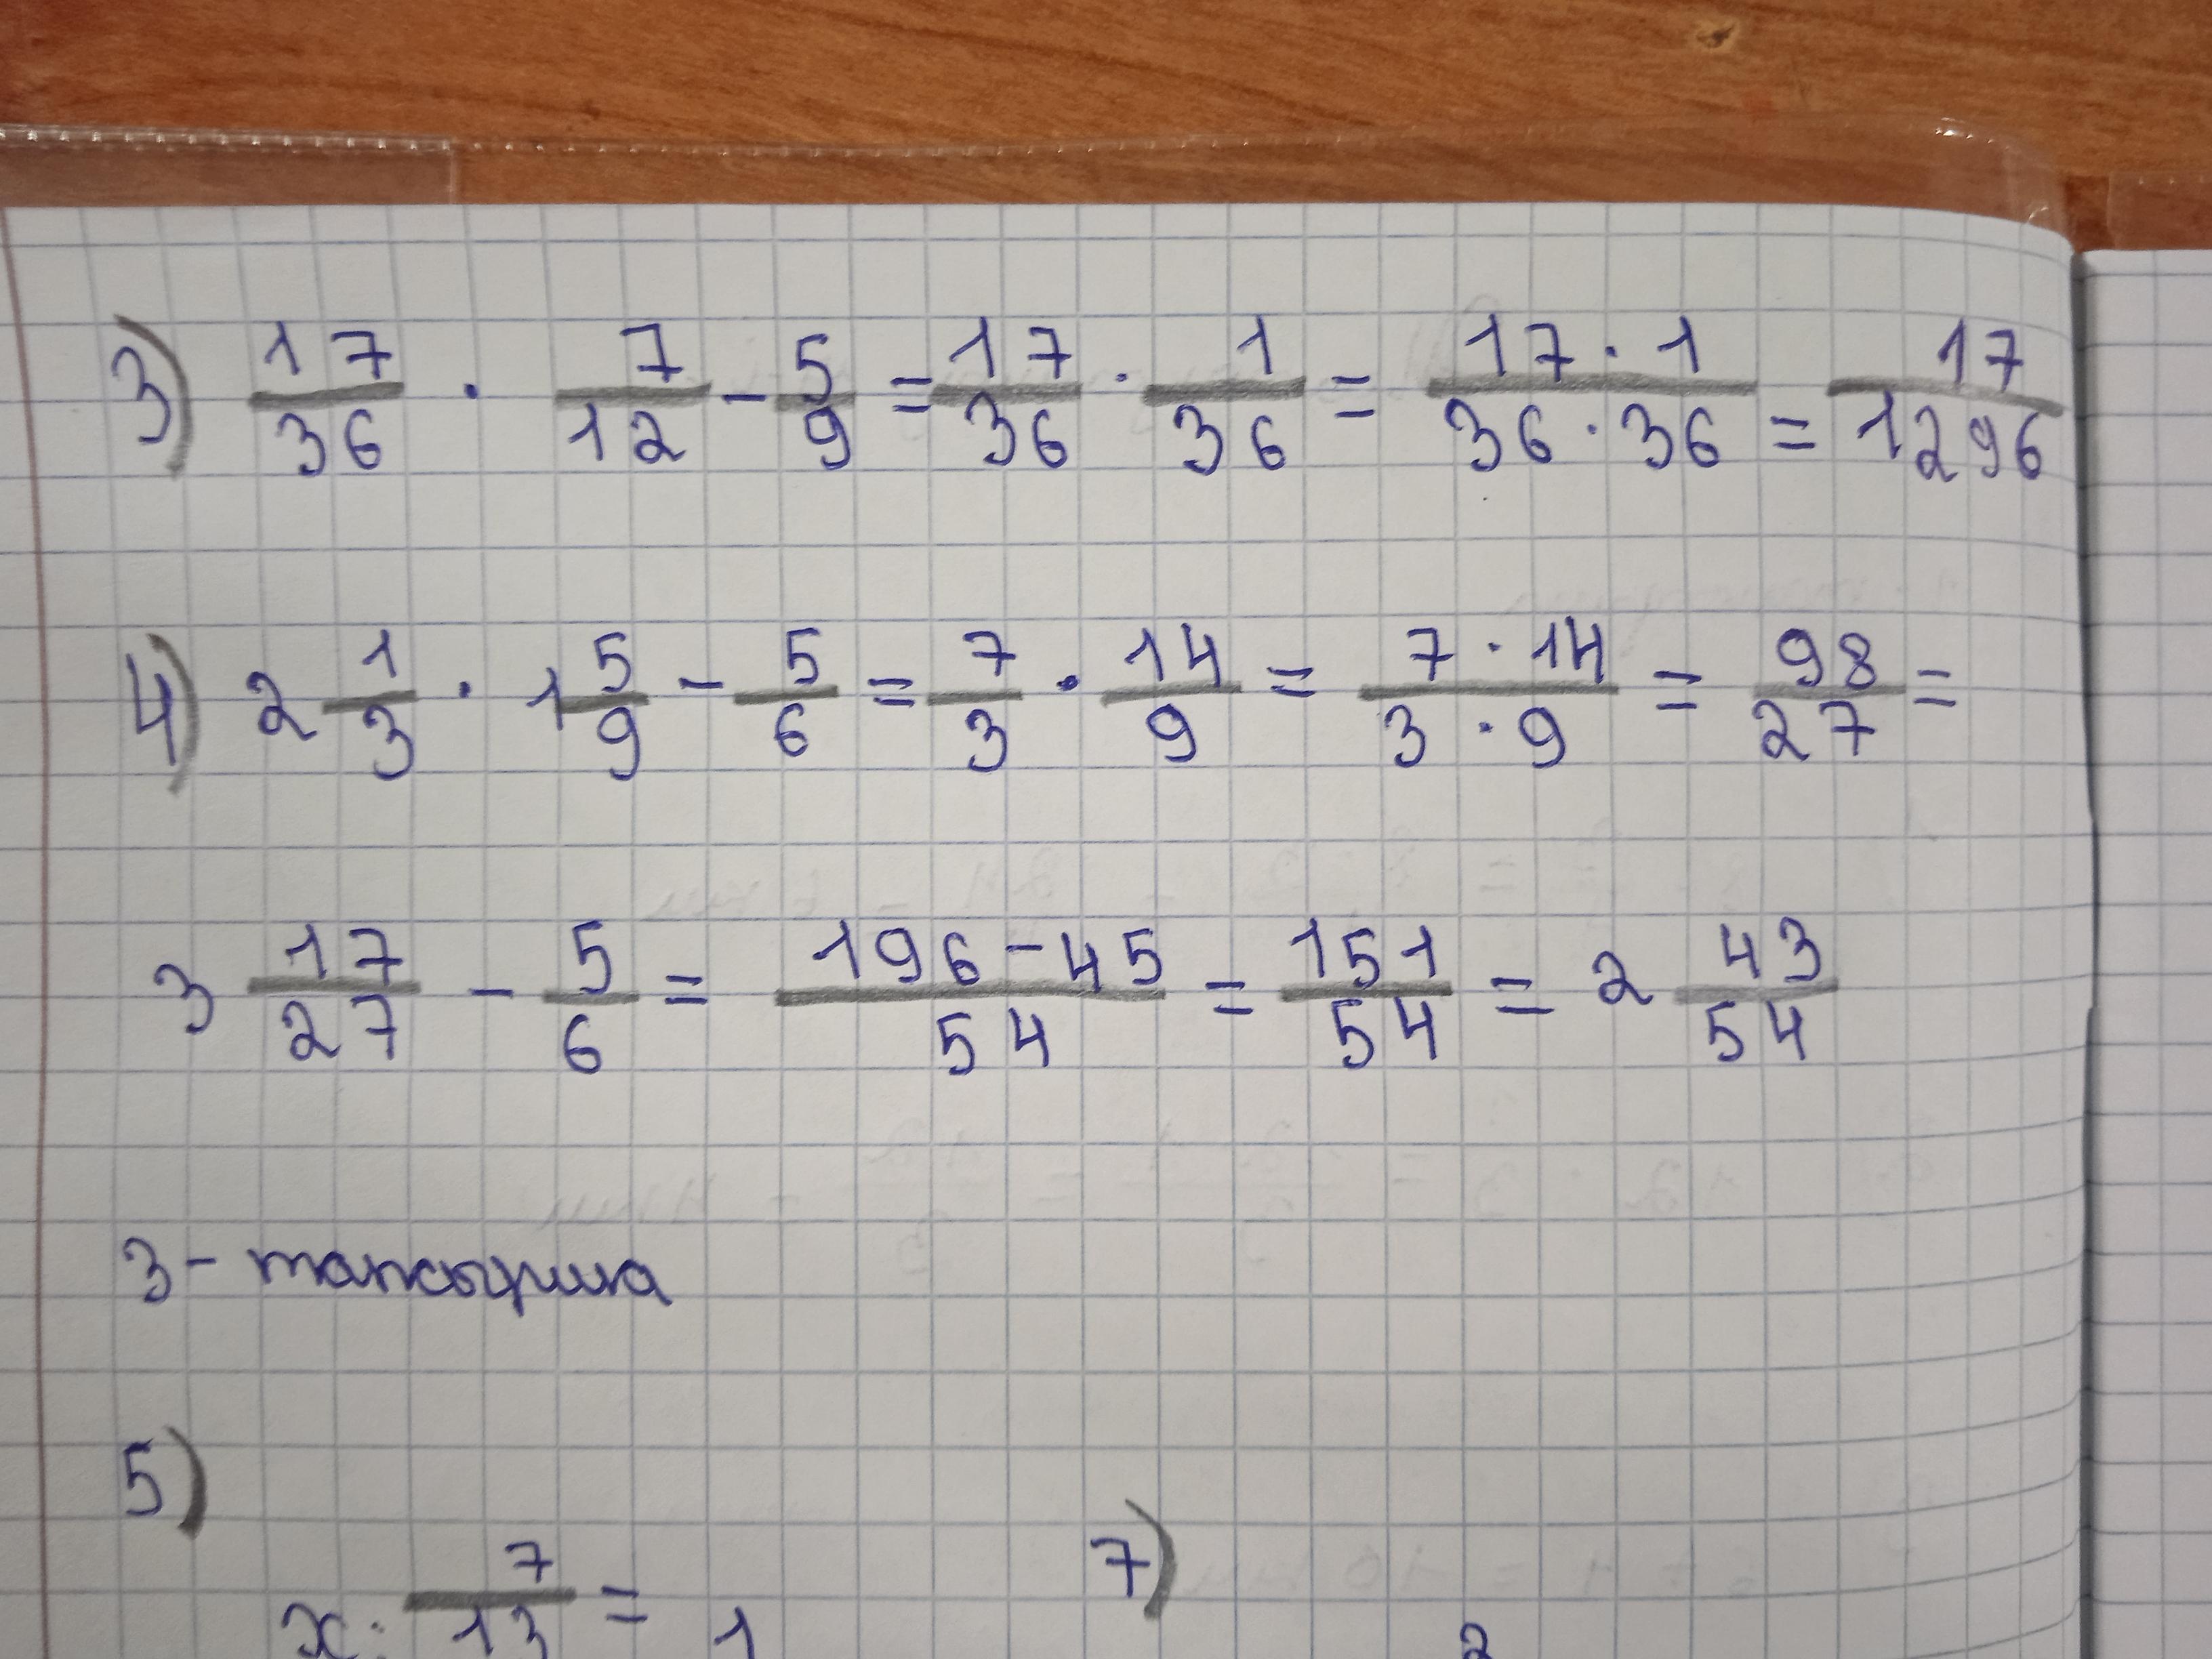 3) 17/36 · 7/12 - 5/9 = 17/36 · 1/36 = 17·1/36·36 = 17/1296
4) 2 1/3 · 1 5/9 - 5/6 = 7/3 · 14/9 = 7·14/3·9 = 98/27 =
3 17/27 - 5/6 = 196-45/54 = 151/54 = 2 43/54
3 - тапсырма
5) 7)
x: 7/13 = 1 2